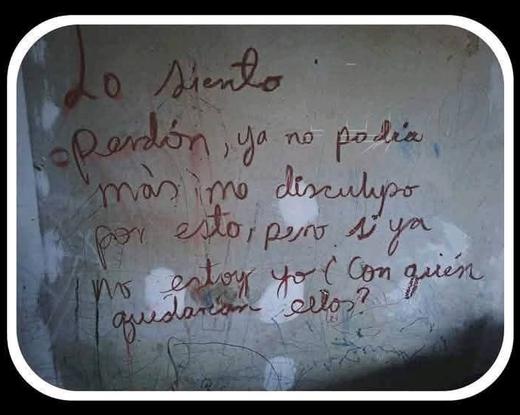 Lo siento
Perdón, ya no podía
más, me disculpo
por esto, pero si ya
no estoy yo ¿Con quién
quedarían ellos?